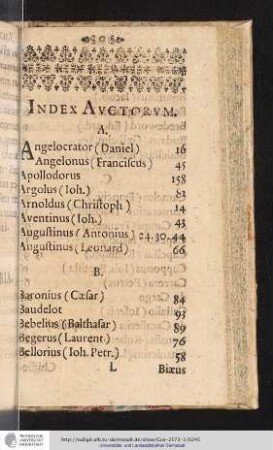 INDEX AVCTORVM.
A.
Angelocrator (Daniel) 16
Angelonus (Franciscus) 45
Apollodorus 158
Argolus (Ioh.) 82
Arnoldus (Christoph) 14
Aventinus (Ioh.) 43
Augustinus (Antonius) 24.30.44
Augustinus (Leonard) 66
B.
Baronius (Cæsar) 84
Baudelot 93
Bebelius (Balthasar) 89
Begerus (Laurent.) 76
Bellorius (Ioh. Petr.) 58
L Biæus
Universitäts- und Landesbibliothek Darmstadt